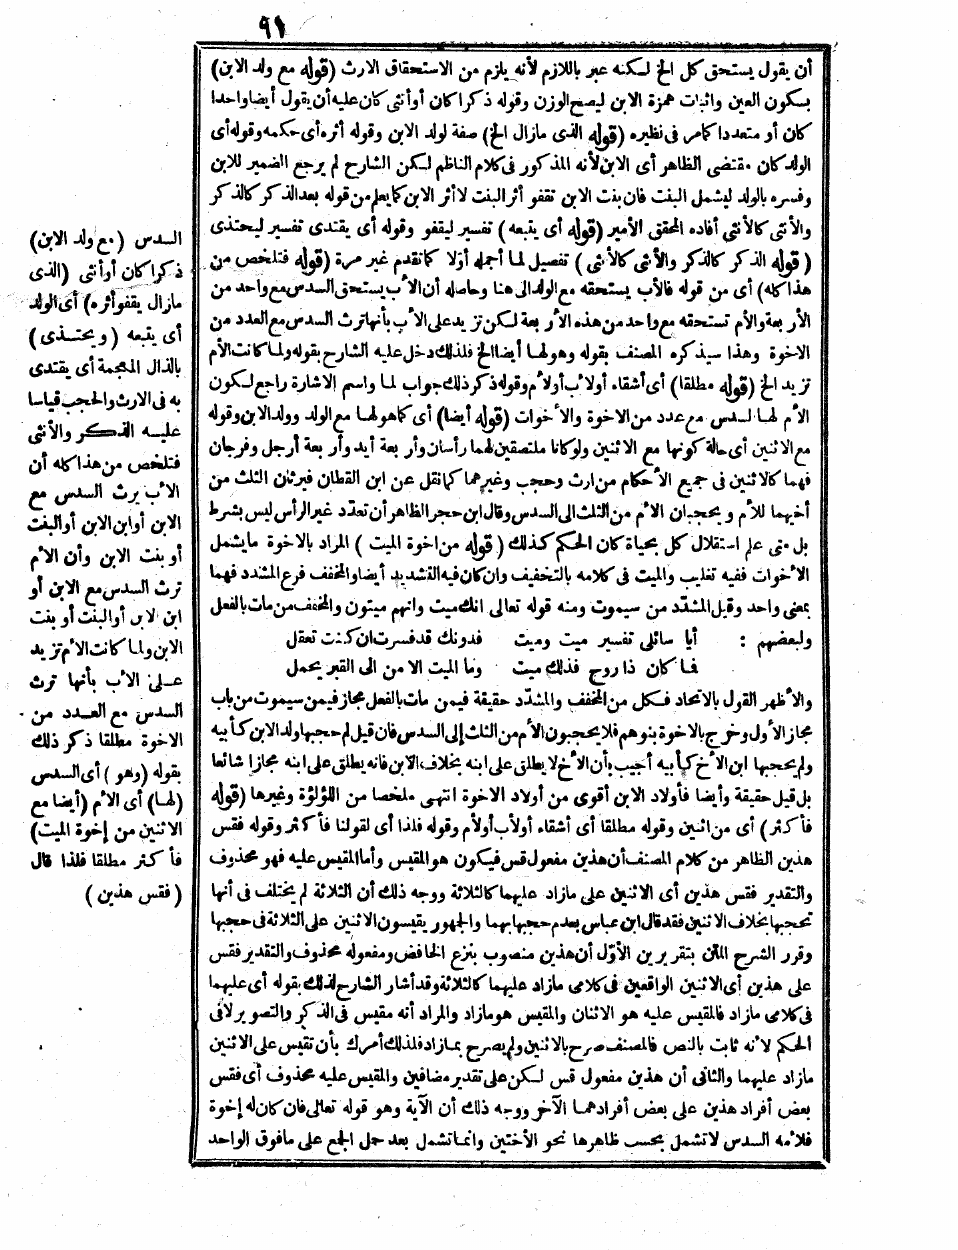 ٩١
أن يقول يستحق كل الخ لكنه عبر باللازم لأنه يلزم من الاستحقاق الارث (قوله مع ولد الابن)
بسكون العين واثبات همزة الابن ليصح الوزن وقوله ذكرا كان أو أنثى كان عليه أن يقول أيضا واحدا
كان أو متعددا كما مر فى نظيره (قوله الذى مازال الخ) صفة لولد الابن وقوله أثره أى حكمه وقوله أى
الولد كان مقتضى الظاهر أى الابن لأنه المذكور فى كلام الناظم لكن الشارح لم يرجع الضمير للابن
وفسره بالولد ليشمل البنت فان بنت الابن تقفو أثر البنت لا أثر الابن كما يعلم من قوله بعد الذكر كالذكر
والأنثى كالأنثى أفاده المحقق الأمير (قوله أى يتبعه) تفسير ليقفو وقوله أى يقتدى تفسير ليحتذى
(قوله الذكر كالذكر والأنثى كالأنثى) تفصيل لما أجمله أولا كما تقدم غير مرة (قوله فتلخص من
هذا كله) أى من قوله فالأب يستحقه مع الولد الى هنا وحاصله أن الأب يستحق السدس مع واحد من
الأربعة والأم تستحقه مع واحد من هذه الأربعة لكن تزيد على الأب بأنها ترث السدس مع العدد من
الاخوة وهذا سيذكره المصنف بقوله وهو لها أيضا الخ فلذلك دخل عليه الشارح بقوله ولما كانت الأم
تزيد الخ (قوله مطلقا) أى أشقاء أو لأب أو لأم وقوله ذكر ذلك جواب لما واسم الاشارة راجع لكون
الأم لها السدس مع عدد من الاخوة والأخوات (قوله أيضا) أى كما هو لها مع الولد وولد الابن وقوله
مع الاثنين أى حالة كونها مع الاثنين ولو كانا ملتصقين لهما رأسان وأربعة أيد وأربعة أرجل وفرجان
فهما كالاثنين فى جميع الأحكام من ارث وحجب وغيرهما كما نقل عن ابن القطان فيرثان الثلث من
أخيهما للأم ويحجبان الأم من الثلث الى السدس وقال ابن حجر الظاهر أن تعدد غير الرأس ليس بشرط
بل متى علم استقلال كل بحياة كان الحكم كذلك (قوله من اخوة الميت) المراد بالاخوة ما يشمل
الأخوات ففيه تغليب والميت فى كلامه بالتخفيف وان كان فيه التشديد أيضا والمخفف فرع المشدد فهما
بمعنى واحد وقيل المشدد من سيموت ومنه قوله تعالى انك ميت وانهم ميتون والمخفف من مات بالفعل
ولبعضهم : أيا سائلى تفسير ميت وميت فدونك قد فسرت ان كنت تعقل
فما كان ذا روح فذلك ميت وما الميت الا من الى القبر يحمل
والأظهر القول بالاتحاد فكل من المخفف والمشدد حقيقة فيمن مات بالفعل مجاز فيمن سيموت من باب
مجاز الأول وخرج بالاخوة بنوهم فلا يحجبون الأم من الثلث إلى السدس فان قيل لم حجبها ولد الابن كأبيه
ولم يحجبها ابن الأخ كأبيه أجيب بأن الأخ لا يطلق على ابنه بخلاف الابن فانه يطلق على ابنه مجازا شائعا
بل قيل حقيقة وأيضا فأولاد الابن أقوى من أولاد الاخوة انتهى ملخصا من اللؤلؤة وغيرها (قوله
فأكثر) أى من اثنين وقوله مطلقا أى أشقاء أو لأب أو لأم وقوله فلذا أى لقولنا فأكثر وقوله فقس
هذين الظاهر من كلام المصنف أن هذين مفعول قس فيكون هو المقيس وأما المقيس عليه فهو محذوف
والتقدير فقس هذين أى الاثنين على مازاد عليهما كالثلاثة ووجه ذلك أن الثلاثة لم يختلف فى أنها
تحجبها بخلاف الاثنين فقد قال ابن عباس بعدم حجبها بهما والجمهور يقيسون الاثنين على الثلاثة فى حجبها
وقرر الشرح المتن بتقريرين الأول أن هذين منصوب بنزع الخافض ومفعوله محذوف والتقدير فقس
على هذين أى الاثنين الواقعين فى كلامى مازاد عليهما كالثلاثة وقد أشار الشارح لذلك بقوله أى عليهما
فى كلامى مازاد فالمقيس عليه هو الاثنان والمقيس هو مازاد والمراد أنه مقيس فى الذكر والتصوير لا فى
الحكم لأنه ثابت بالنص فالمصنف صرح بالاثنين ولم يصرح بمازاد فلذلك أمرك بأن تقيس على الاثنين
مازاد عليهما والثانى أن هذين مفعول قس لكن على تقدير مضافين والمقيس عليه محذوف أى فقس
بعض أفراد هذين على بعض أفرادهما الآخر ووجه ذلك أن الآية وهو قوله تعالى فان كان له إخوة
فلأمه السدس لا تشمل بحسب ظاهرها نحو الأختين وانما تشمل بعد حمل الجمع على مافوق الواحد
السدس (مع ولد الابن)
ذكرا كان أو أنثى (الذى
مازال يقفو أثره) أى الولد
أى يتبعه (ويحتذى)
بالذال المعجمة أى يقتدى
به فى الارث والحجب قياسا
عليه الذكر والأنثى
فتلخص من هذا كله أن
الأب يرث السدس مع
الابن أو ابن الابن أو البنت
أو بنت الابن وأن الأم
ترث السدس مع الابن أو
ابن الابن أو البنت أو بنت
الابن ولما كانت الأم تزيد
على الأب بأنها ترث
السدس مع العدد من
الاخوة مطلقا ذكر ذلك
بقوله (وهو) أى السدس
(لها) أى الأم (أيضا مع
الاثنين من إخوة الميت)
فأكثر مطلقا فلذا قال
(فقس هذين)